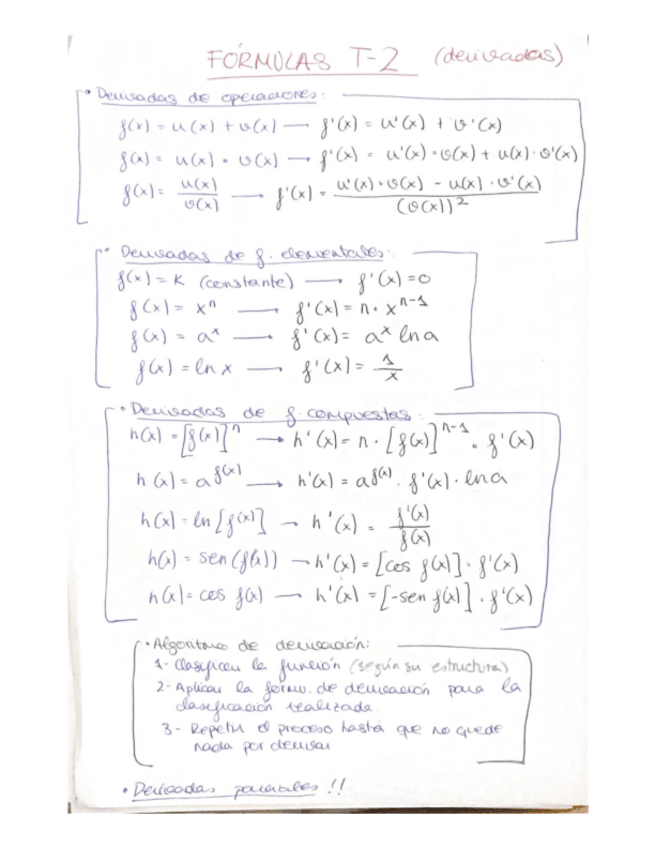 FÓRMULAS T-2 (derivadas)
• Derivadas de operaciones:
f(x) = u(x) + v(x) — f'(x) = u'(x) + v'(x)
f(x) = u(x) • v(x) → f'(x) = u'(x)•v(x) + u(x)•v'(x)
f(x) = u(x)/v(x) → f'(x) = (u'(x)•v(x) - u(x)•v'(x))/(v(x))²
• Derivadas de f. elementales:
f(x) = K (constante) → f'(x) = 0
f(x) = xⁿ → f'(x) = n • xⁿ⁻¹
f(x) = aˣ → f'(x) = aˣ ln a
f(x) = ln x → f'(x) = 1/x
• Derivadas de f. compuestas:
h(x) = [f(x)]ⁿ → h'(x) = n • [f(x)]ⁿ⁻¹ • f'(x)
h(x) = a^f(x) → h'(x) = a^f(x) • f'(x) • ln a
h(x) = ln [f(x)] → h'(x) = f'(x)/f(x)
h(x) = sen (f(x)) → h'(x) = [cos f(x)] • f'(x)
h(x) = cos f(x) → h'(x) = [-sen f(x)] • f'(x)
• Algoritmo de derivación:
1- Clasificar la función (según su estructura)
2- Aplicar la fórmu. de derivación para la
clasificación realizada.
3- Repetir el proceso hasta que no quede
nada por derivar
• Derivadas parciales !!